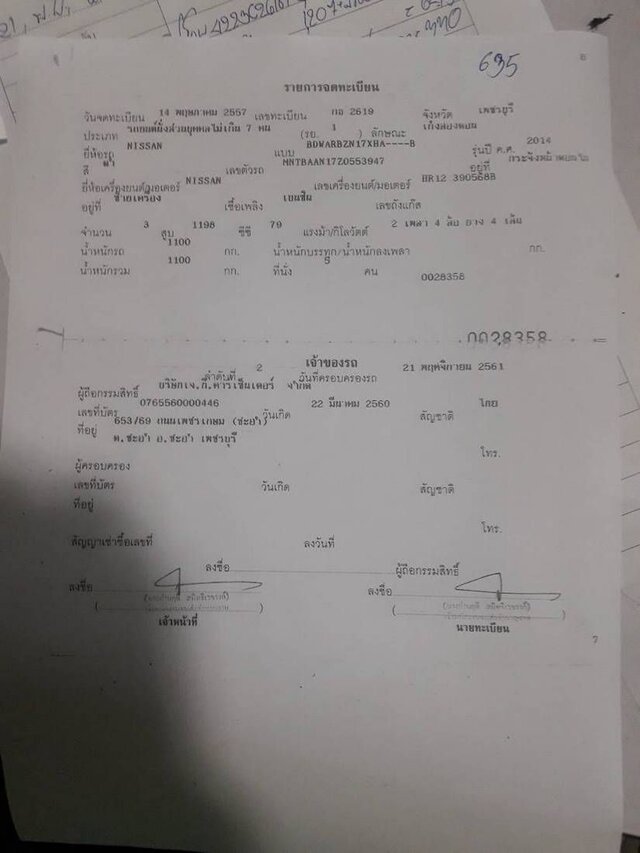 635
8
8
รายการจดทะเบียน
วันจดทะเบียน 14 พฤษภาคม 2557 เลขทะเบียน กอ 2619 จังหวัด เพชรบุรี
ประเภท รถยนต์นั่งส่วนบุคคลไม่เกิน 7 คน (รย. 1 ) ลักษณะ เก๋งสองตอน
ยี่ห้อรถ NISSAN แบบ BDWARBZN17XHA----B รุ่นปี ค.ศ. 2014
สี เลขตัวรถ MNTBAAN17Z0553947 อยู่ที่
ยี่ห้อเครื่องยนต์/มอเตอร์ NISSAN เลขเครื่องยนต์/มอเตอร์ HR12 390568B
อยู่ที่ ซ้ายเครื่อง เชื้อเพลิง เบนซิน เลขถังแก๊ส
จำนวน 3 สูบ 1198 ซีซี 79 แรงม้า/กิโลวัตต์ 2 เพลา 4 ล้อ ยาง 4 เส้น
น้ำหนักรถ 1100 กก. น้ำหนักบรรทุก/น้ำหนักลงเพลา กก.
น้ำหนักรวม 1100 กก. ที่นั่ง 5 คน 0028358
0028358
เจ้าของรถ
ลำดับที่ 2 วันที่ครอบครองรถ 21 พฤศจิกายน 2561
ผู้ถือกรรมสิทธิ์ บริษัทเจ.ที.คาร์เซ็นเตอร์ จำกัด
เลขที่บัตร 0765560000446 วันเกิด 22 มีนาคม 2560 สัญชาติ ไทย
ที่อยู่ 653/69 ถนนเพชรเกษม (ชะอำ)
ต.ชะอำ อ.ชะอำ เพชรบุรี โทร.
ผู้ครอบครอง
เลขที่บัตร วันเกิด สัญชาติ
ที่อยู่
โทร.
สัญญาเช่าซื้อเลขที่ ลงวันที่
ลงชื่อ ผู้ถือกรรมสิทธิ์
ลงชื่อ ลงชื่อ
เจ้าหน้าที่ นายทะเบียน
7